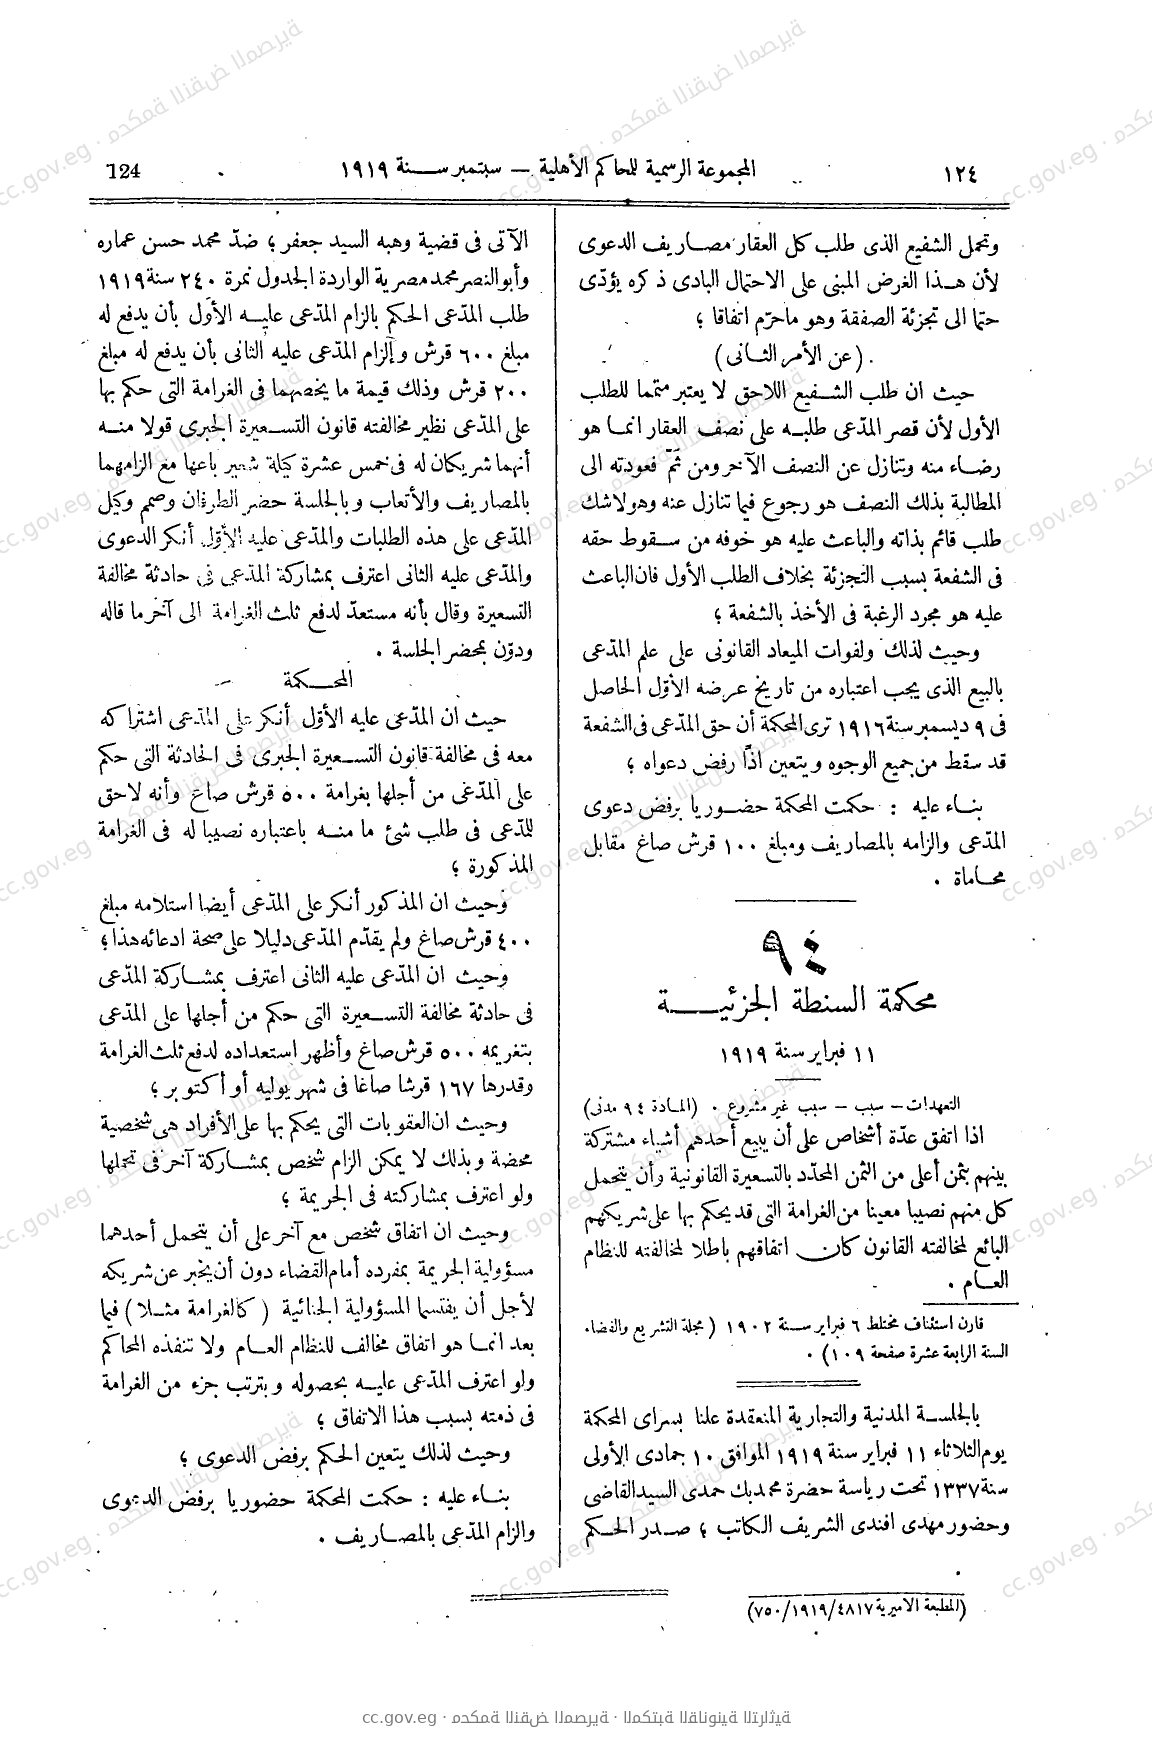 ١٢٤
المجموعة الرسمية للمحاكم الأهلية — سبتمبر سنة ١٩١٩
124
وتحمل الشفيع الذى طلب كل العقار مصاريف الدعوى
لأن هذا الغرض المبنى على الاحتمال البادى ذكره يؤدّى
حتما الى تجزئة الصفقة وهو ما حرّم اتفاقا ؛
(عن الأمر الثانى)
حيث ان طلب الشفيع اللاحق لا يعتبر متمما للطلب
الأول لأن قصر المدّعى طلبه على نصف العقار انما هو
رضاء منه وتنازل عن النصف الآخر ومن ثَمّ فعودته الى
المطالبة بذلك النصف هو رجوع فيما تنازل عنه وهو لا شك
طلب قائم بذاته والباعث عليه هو خوفه من سقوط حقه
فى الشفعة بسبب التجزئة بخلاف الطلب الأول فان الباعث
عليه هو مجرد الرغبة فى الأخذ بالشفعة ؛
وحيث لذلك ولفوات الميعاد القانونى على علم المدّعى
بالبيع الذى يجب اعتباره من تاريخ عرضه الأوّل الحاصل
فى ٩ ديسمبر سنة ١٩١٦ ترى المحكمة أن حق المدّعى فى الشفعة
قد سقط من جميع الوجوه ويتعين اذًا رفض دعواه ؛
بناء عليه : حكمت المحكمة حضوريا برفض دعوى
المدّعى والزامه بالمصاريف ومبلغ ١٠٠ قرش صاغ مقابل
محاماة .
٩٤
محكمة السنطة الجزئية
١١ فبراير سنة ١٩١٩
التعهدات — سبب — سبب غير مشروع . (المادة ٩٤ مدنى)
اذا اتفق عدّة أشخاص على أن يبيع أحدهم أشياء مشتركة
بينهم بثمن أعلى من الثمن المحدّد بالتسعيرة القانونية وأن يتحمل
كل منهم نصيبا معينا من الغرامة التى قد يحكم بها على شريكهم
البائع لمخالفته القانون كان اتفاقهم باطلا لمخالفته للنظام
العام .
قارن استئناف مختلط ٦ فبراير سنة ١٩٠٢ (مجلة التشريع والقضاء
السنة الرابعة عشرة صفحة ١٠٩) .
بالجلسة المدنية والتجارية المنعقدة علنا بسراى المحكمة
يوم الثلاثاء ١١ فبراير سنة ١٩١٩ الموافق ١٠ جمادى الأولى
سنة ١٣٣٧ تحت رياسة حضرة محمد بك حمدى السيد القاضى
وحضور مهدى افندى الشريف الكاتب ؛ صدر الحكم
الآتى فى قضية وهبه السيد جعفر ؛ ضدّ محمد حسن عماره
وأبو النصر محمد مصرية الواردة الجدول نمرة ٢٤٠ سنة ١٩١٩
طلب المدّعى الحكم بالزام المدّعى عليه الأوّل بأن يدفع له
مبلغ ٦٠٠ قرش وإلزام المدّعى عليه الثانى بأن يدفع له مبلغ
٢٠٠ قرش وذلك قيمة ما يخصهما فى الغرامة التى حكم بها
على المدّعى نظير مخالفته قانون التسعيرة الجبرى قولا منه
أنهما شريكان له فى خمس عشرة كيلة شعير باعها مع الزامهما
بالمصاريف والأتعاب وبالجلسة حضر الطرفان وصمم وكيل
المدّعى على هذه الطلبات والمدّعى عليه الأوّل أنكر الدعوى
والمدّعى عليه الثانى اعترف بمشاركة المدّعى فى حادثة مخالفة
التسعيرة وقال بأنه مستعدّ لدفع ثلث الغرامة الى آخر ما قاله
ودوّن بمحضر الجلسة .
المحكمة
حيث ان المدّعى عليه الأوّل أنكر على المدّعى اشتراكه
معه فى مخالفة قانون التسعيرة الجبرى فى الحادثة التى حكم
على المدّعى من أجلها بغرامة ٥٠٠ قرش صاغ وأنه لا حق
للمدّعى فى طلب شئ ما منه باعتباره نصيبا له فى الغرامة
المذكورة ؛
وحيث ان المذكور أنكر على المدّعى أيضا استلامه مبلغ
٤٠٠ قرش صاغ ولم يقدّم المدّعى دليلا على صحة ادعائه هذا ؛
وحيث ان المدّعى عليه الثانى اعترف بمشاركة المدّعى
فى حادثة مخالفة التسعيرة التى حكم من أجلها على المدّعى
بتغريمه ٥٠٠ قرش صاغ وأظهر استعداده لدفع ثلث الغرامة
وقدرها ١٦٧ قرشا صاغا فى شهر يوليه أو أكتوبر ؛
وحيث ان العقوبات التى يحكم بها على الأفراد هى شخصية
محضة وبذلك لا يمكن الزام شخص بمشاركة آخر فى تحملها
ولو اعترف بمشاركته فى الجريمة ؛
وحيث ان اتفاق شخص مع آخر على أن يتحمل أحدهما
مسؤولية الجريمة بمفرده أمام القضاء دون أن يخبر عن شريكه
لأجل أن يقتسما المسؤولية الجنائية (كالغرامة مثلا) فيما
بعد انما هو اتفاق مخالف للنظام العام ولا تنفذه المحاكم
ولو اعترف المدّعى عليه بحصوله وبترتب جزء من الغرامة
فى ذمته بسبب هذا الاتفاق ؛
وحيث لذلك يتعين الحكم برفض الدعوى ؛
بناء عليه : حكمت المحكمة حضوريا برفض الدعوى
والزام المدّعى بالمصاريف .
(المطبعة الاميرية ٤٨١٧/١٩١٩/٧٥٠)
cc.gov.eg · محكمة النقض المصرية · المكتبة القانونية التراثية